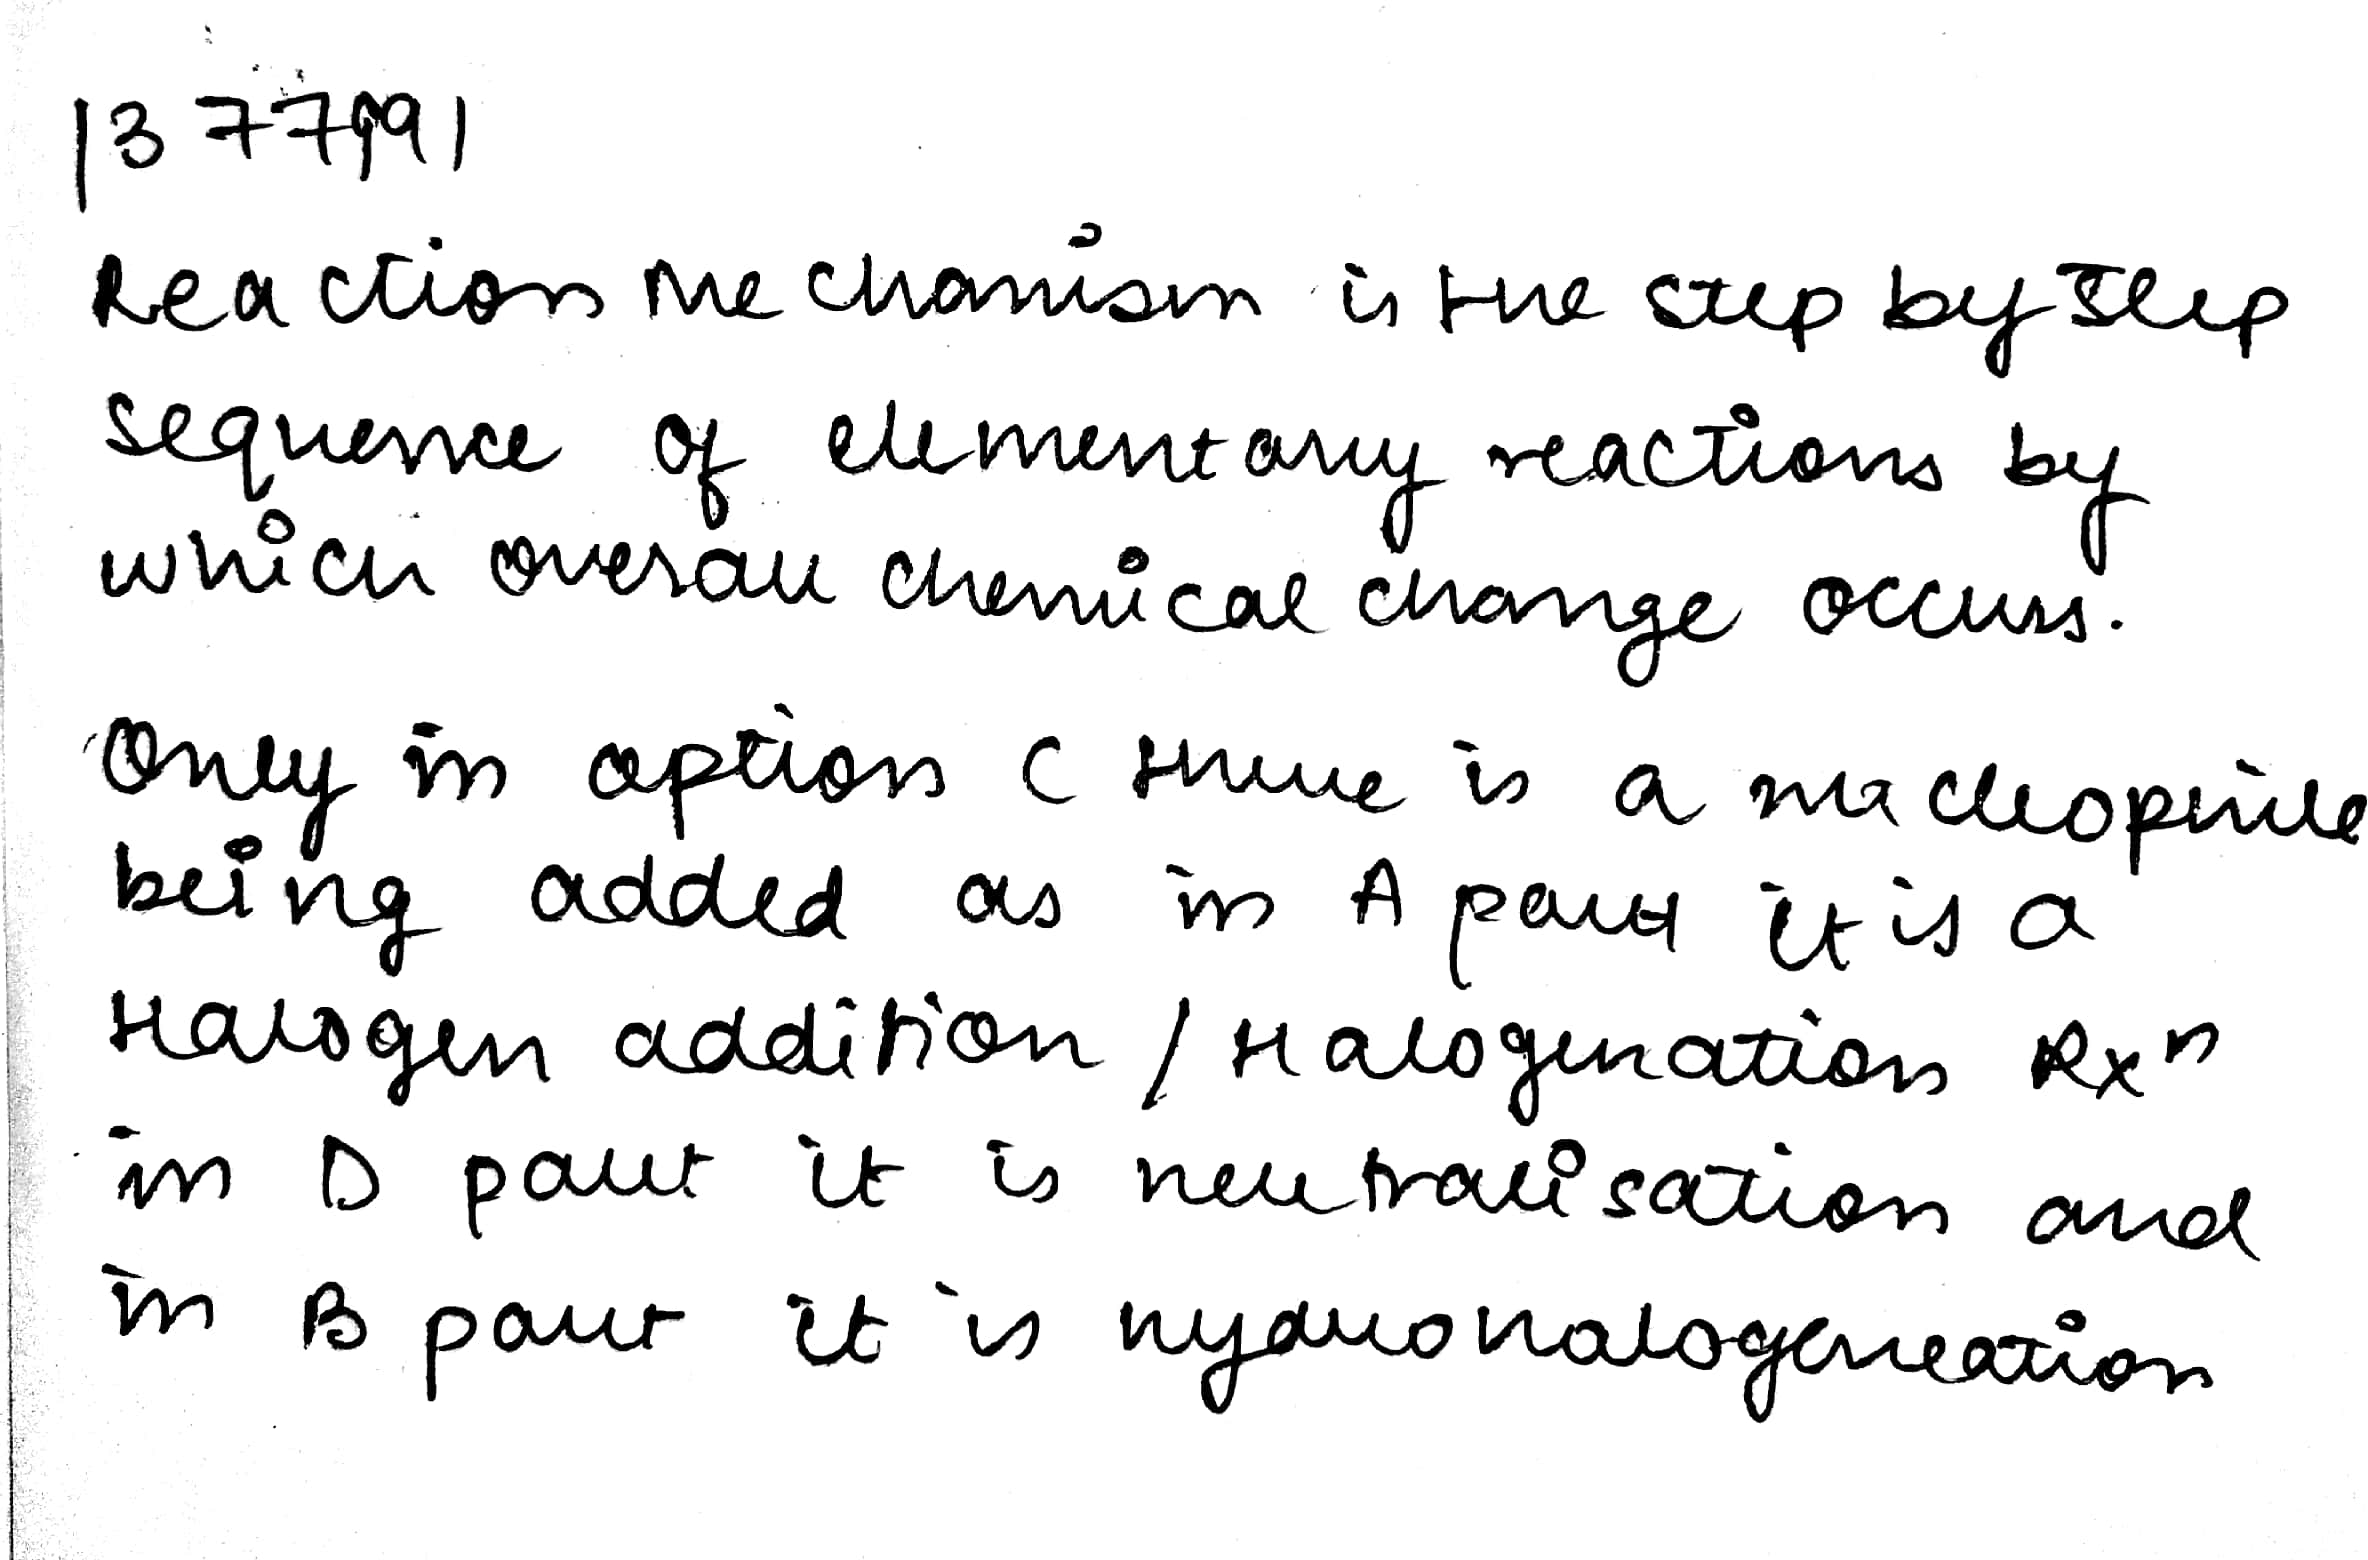 1377991
Reaction Mechanism is the step by step
sequence of elementary reactions by
which overall chemical change occurs.
Only in option C there is a nucleophile
being added as in A part it is a
Halogen addition / Halogenation Rxn
in D part it is neutralisation and
in B part it is hydrohalogeneation